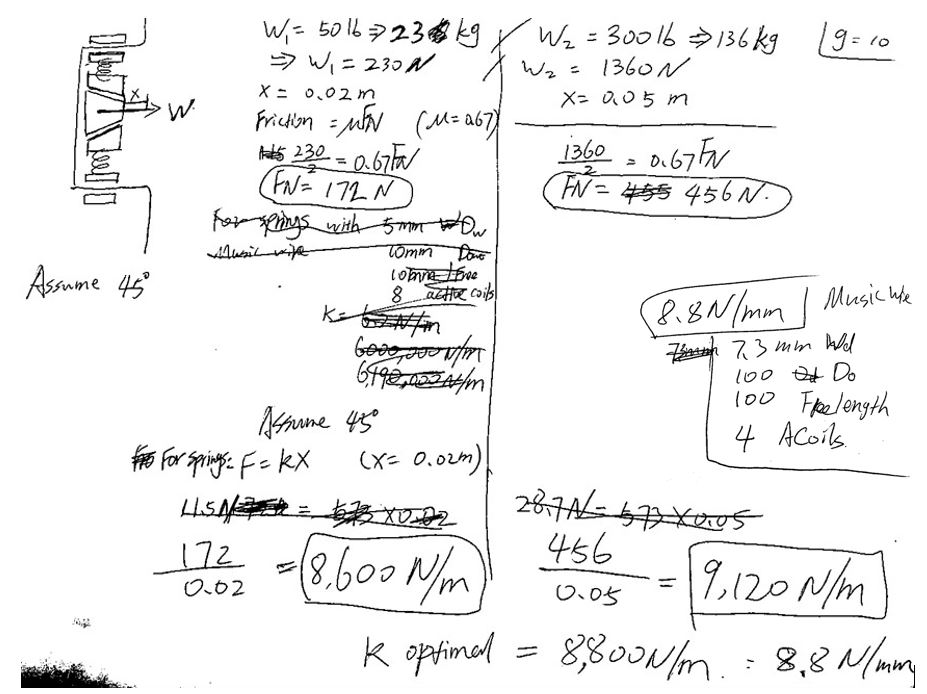 W₁ = 50 lb ⇒ 23 kg
⇒ W₁ = 230N
x = 0.02 m
Friction = μFN (μ = 0.67)
230/2 = 0.67FN
FN = 172 N
For springs with 5mm Dw
Music wire 10mm
Free
8 active coils
K =
N/m
6000,000 N/m
N/m
x
W
Assume 45°
Assume 45°
For springs: F = kX (X = 0.02m)
11.5N = 573 X 0.02
172/0.02 = 8,600 N/m
W₂ = 300 lb ⇒ 136 kg
g = 10
W₂ = 1360 N
x = 0.05 m
1360/2 = 0.67FN
FN = 455 456 N.
8.8 N/mm Music wire
7.3 mm Wd
100 Do
100 Free length
4 ACoils
28.7N = 573 X 0.05
456/0.05 = 9,120 N/m
K optimal = 8,800 N/m = 8.8 N/mm